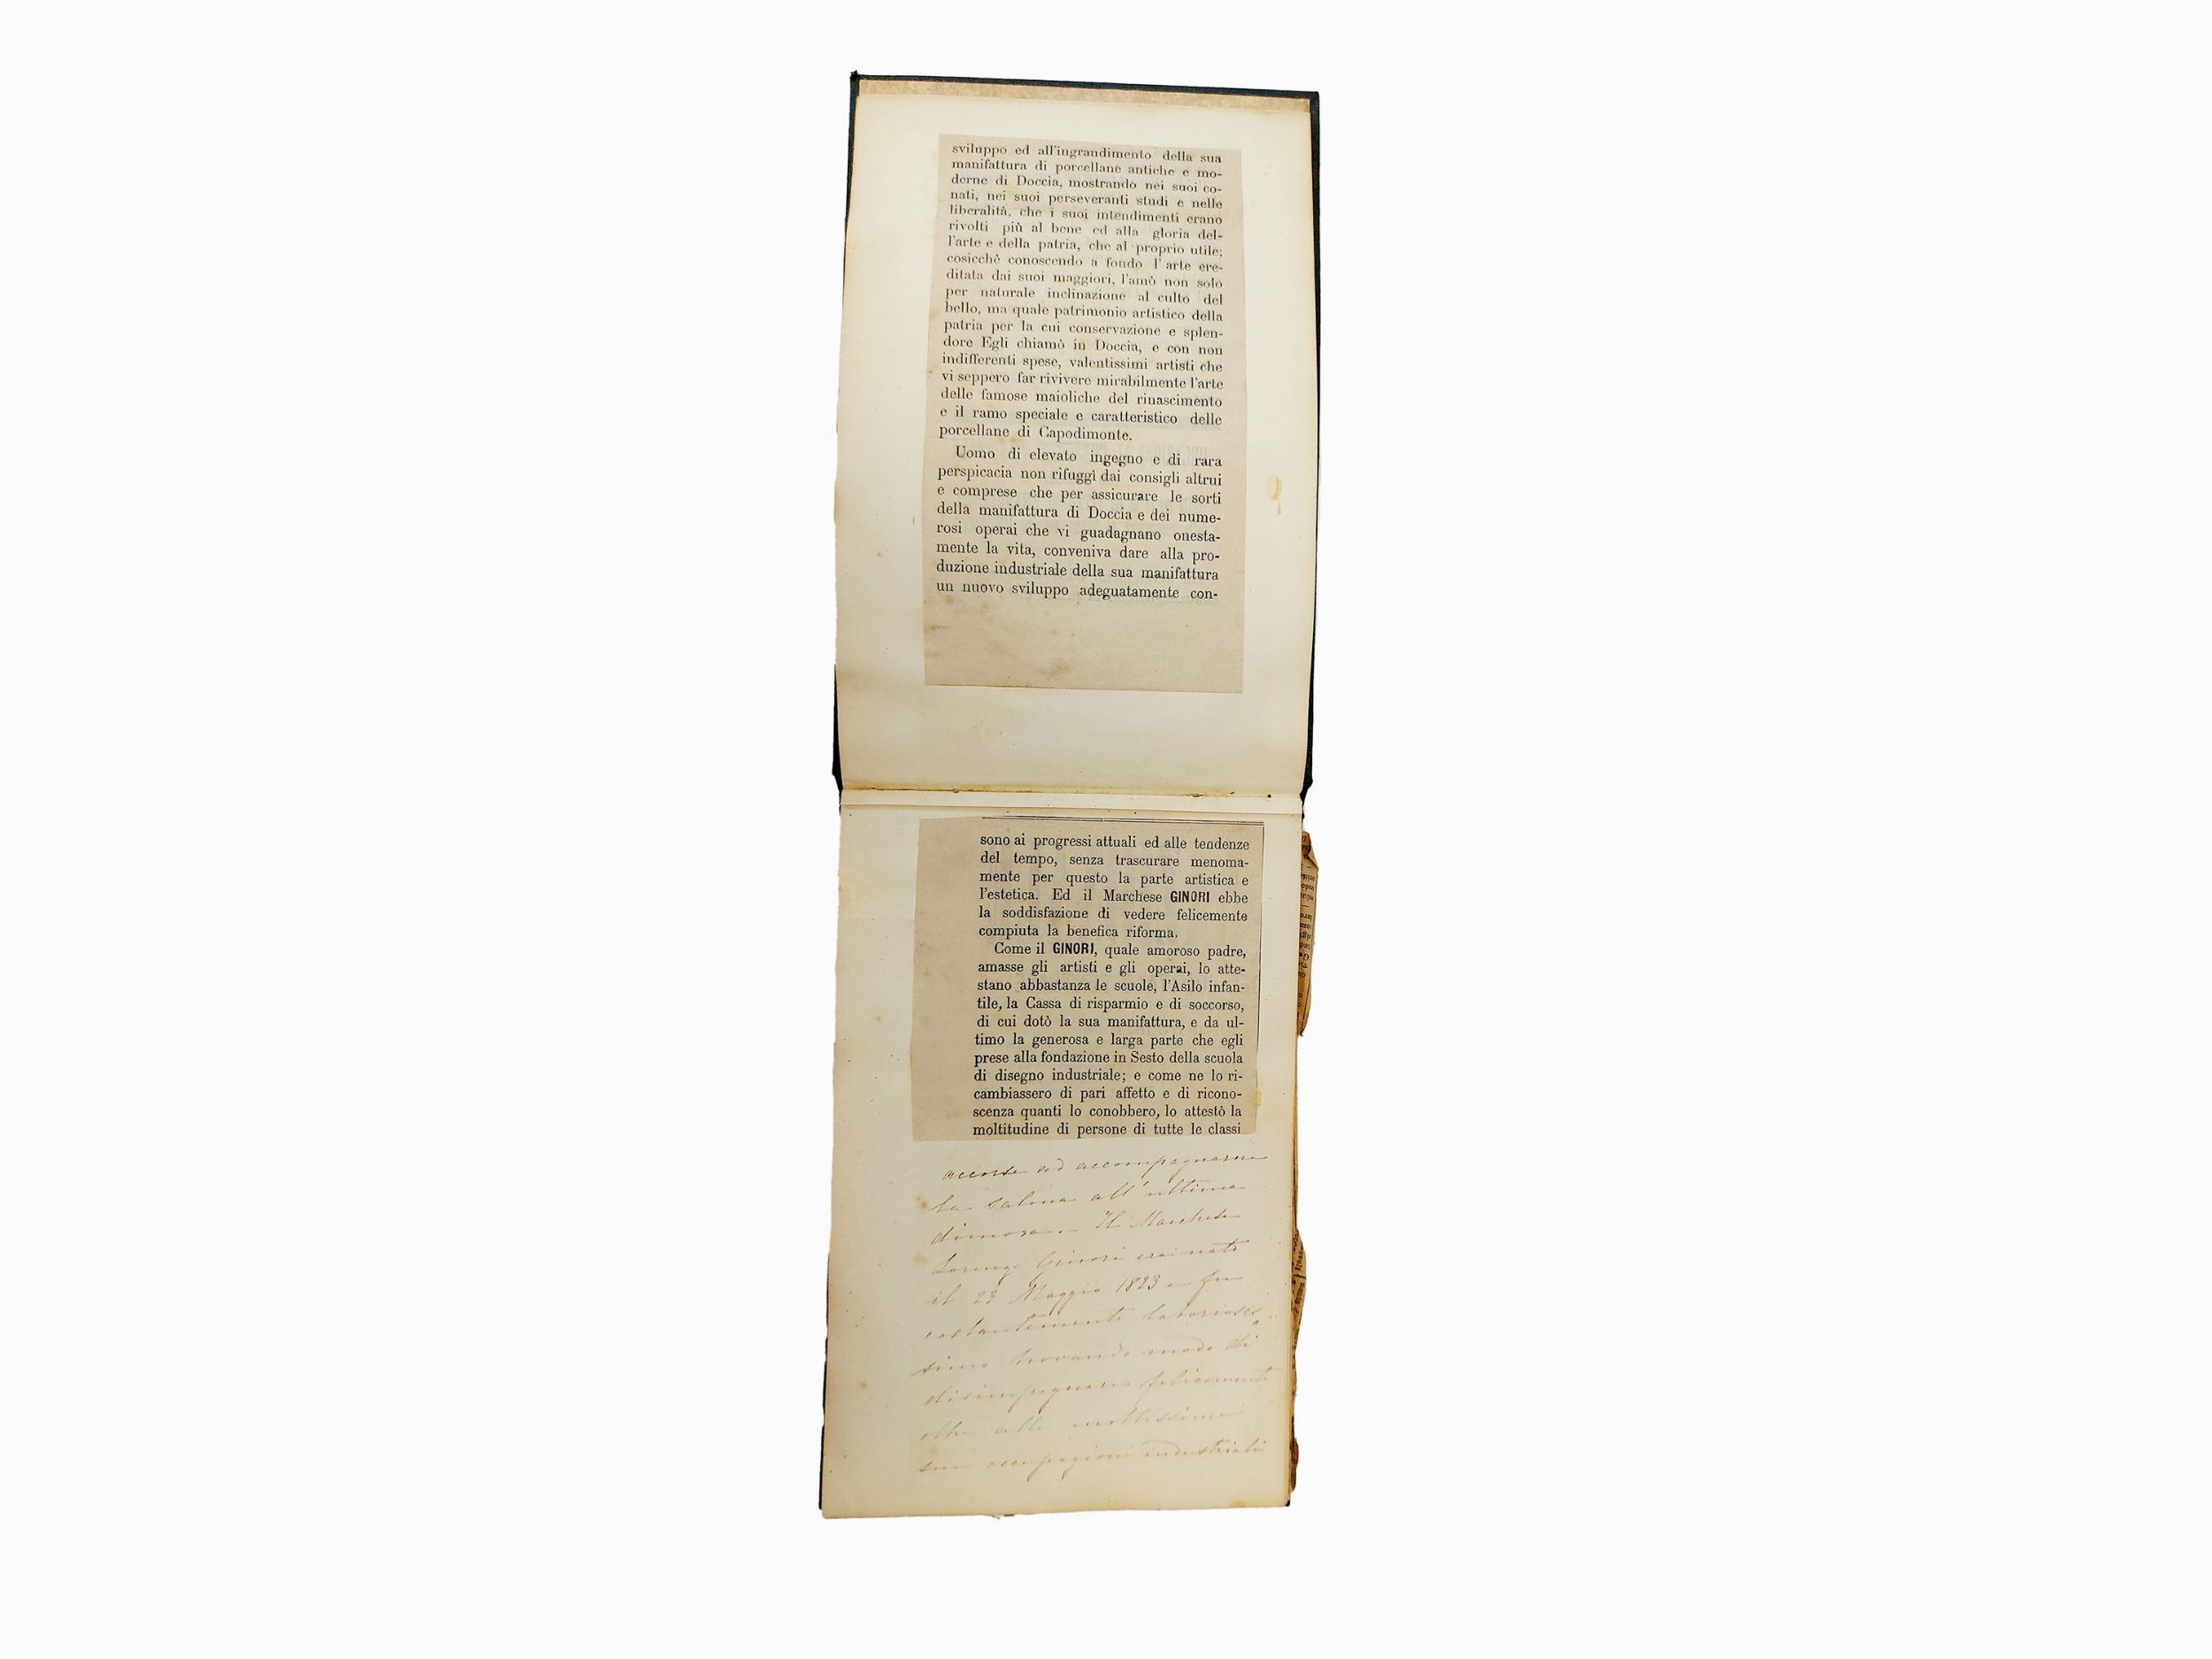 sviluppo ed all'ingrandimento della sua
manifattura di porcellane antiche e mo-
derne di Doccia, mostrando nei suoi co-
nati, nei suoi perseveranti studi e nelle
liberalità, che i suoi intendimenti erano
rivolti più al bene ed alla gloria del-
l'arte e della patria, che al proprio utile;
cosicchè conoscendo a fondo l'arte ere-
ditata dai suoi maggiori, l'amò non solo
per naturale inclinazione al culto del
bello, ma quale patrimonio artistico della
patria per la cui conservazione e splen-
dore Egli chiamò in Doccia, e con non
indifferenti spese, valentissimi artisti che
vi seppero far rivivere mirabilmente l'arte
delle famose maioliche del rinascimento
e il ramo speciale e caratteristico delle
porcellane di Capodimonte.
Uomo di elevato ingegno e di rara
perspicacia non rifuggì dai consigli altrui
e comprese che per assicurare le sorti
della manifattura di Doccia e dei nume-
rosi operai che vi guadagnano onesta-
mente la vita, conveniva dare alla pro-
duzione industriale della sua manifattura
un nuovo sviluppo adeguatamente con-
sono ai progressi attuali ed alle tendenze
del tempo, senza trascurare menoma-
mente per questo la parte artistica e
l'estetica. Ed il Marchese GINORI ebbe
la soddisfazione di vedere felicemente
compiuta la benefica riforma.
Come il GINORI, quale amoroso padre,
amasse gli artisti e gli operai, lo atte-
stano abbastanza le scuole, l'Asilo infan-
tile, la Cassa di risparmio e di soccorso,
di cui dotò la sua manifattura, e da ul-
timo la generosa e larga parte che egli
prese alla fondazione in Sesto della scuola
di disegno industriale; e come ne lo ri-
cambiassero di pari affetto e di ricono-
scenza quanti lo conobbero, lo attestò la
moltitudine di persone di tutte le classi
accorse ad accompagnarne
la salma all'ultima
dimora. Il Marchese
Lorenzo Ginori era nato
il 23 Maggio 1823 e fu
costantemente laborioses
simo trovando modo di
disimpegnare felicemente
oltre alle moltissime
sue occupazioni industriali